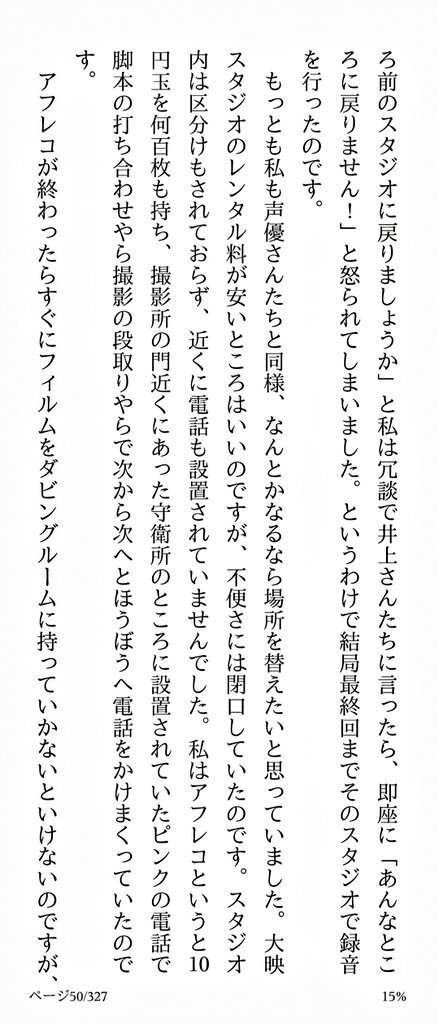 ろ前のスタジオに戻りましょうか」と私は冗談で井上さんたちに言ったら、即座に「あんなとこ
ろに戻りません！」と怒られてしまいました。というわけで結局最終回までそのスタジオで録音
を行ったのです。
もっとも私も声優さんたちと同様、なんとかなるなら場所を替えたいと思っていました。大映
スタジオのレンタル料が安いところはいいのですが、不便さには閉口していたのです。スタジオ
内は区分けもされておらず、近くに電話も設置されていませんでした。私はアフレコというと10
円玉を何百枚も持ち、撮影所の門近くにあった守衛所のところに設置されていたピンクの電話で
脚本の打ち合わせやら撮影の段取りやらで次から次へとほうぼうへ電話をかけまくっていたので
す。
アフレコが終わったらすぐにフィルムをダビングルームに持っていかないといけないのですが、
ページ50/327
15%